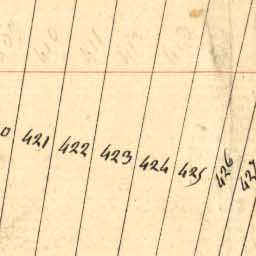 0 421 422 423 424 425 426 427